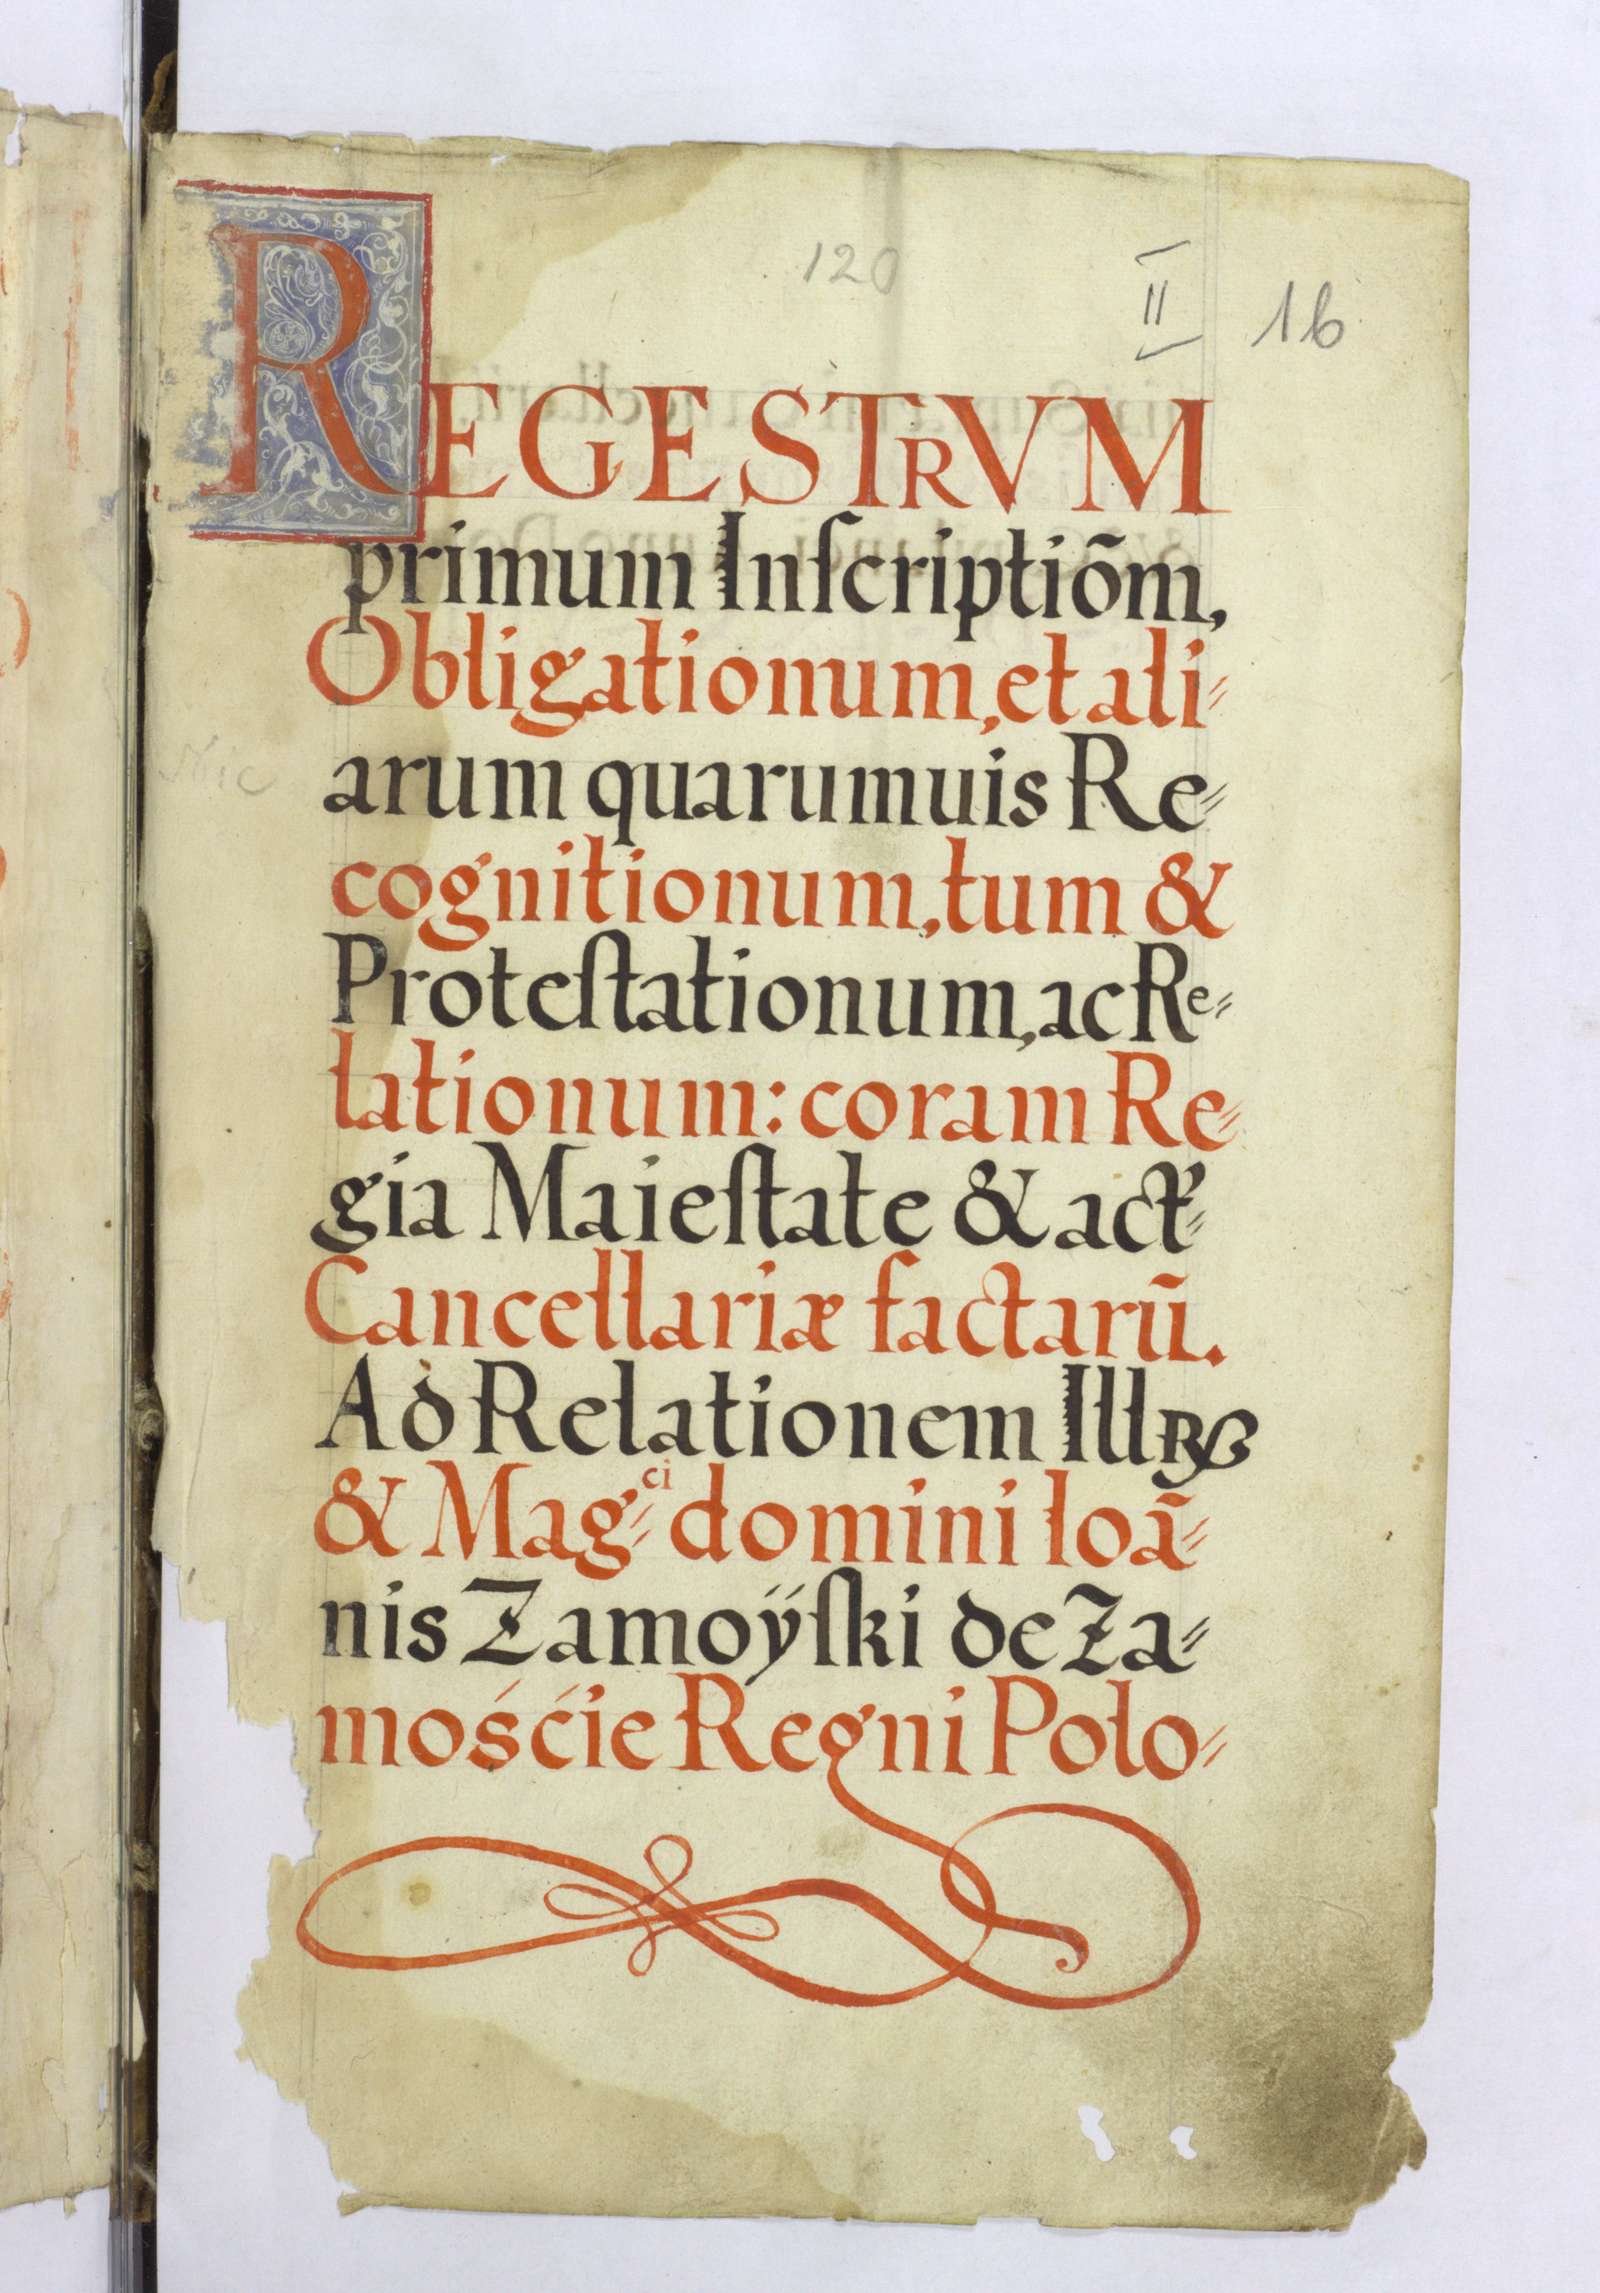 120
II 16
REGESTRVM
primum Inſcriptiõm,
Obligationum, et ali⸗
arum quarumuis Re⸗
cognitionum, tum &
Proteſtationum, ac Re⸗
lationum: coram Re⸗
gia Maieſtate & act'⸗
Cancellariæ factarũ.
Ad Relationem Ill
& Mag⸗ci domini Ioã⸗
nis Zamoÿſki de Za⸗
mośćie Regni Polo⸗